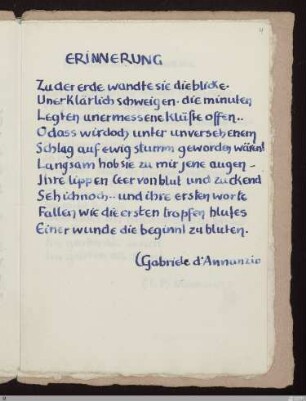 ERINNERUNG
Zu der erde wandte sie die blicke.
Unerklärlich schweigen. die minuten
Legten unermessene klüfte offen..
O dass wir doch unter unversehenem
Schlag auf ewig stumm geworden wären!
Langsam hob sie zu mir jene augen –
Ihre lippen leer von blut und zuckend
Seh ich noch.. und ihre ersten worte
Fallen wie die ersten tropfen blutes
Einer wunde die beginnt zu bluten.
(Gabriele d'Annunzio